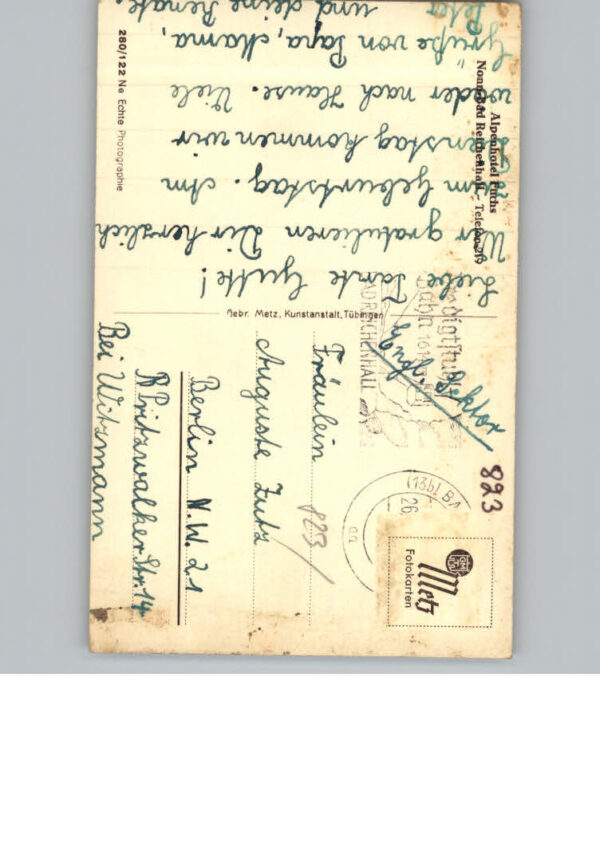 Alpenhotel Fuchs
Nonn-Bad Reichenhall – Telefon 269
Liebe Tante Gutte!
Wir gratulieren Dir herzlich
zum Geburtstag. Am
Dienstag kommen wir
wieder nach Hause. Viele
Grüße von Papa, Mama,
Peter und deine Renate.
280/122 Ne Echte Photographie
Gebr. Metz, Kunstanstalt, Tübingen
Predigtstuhl
Bahn
BAD REICHENHALL
Engl. Sektor
823
(13b) BA
26.
Metz
Fotokarten
823
Fräulein
Auguste Lutz
Berlin N.W. 21
Pritzwalker Str. 14
Bei Witzmann